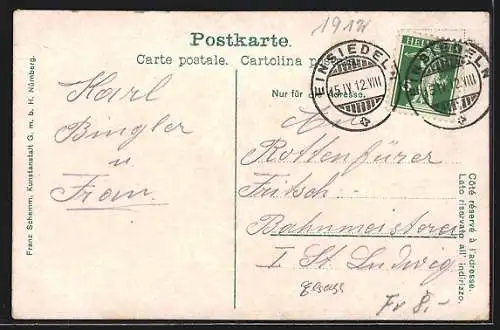 1912
Postkarte.
Carte postale. Cartolina
Nur für die Adresse.
EINSIEDELN
15.IV.12.VIII
HELVETIA
EINSIEDELN
15.IV.12.VIII
Karl
Bingler
u
Frau
An
Rottenfürer
Fritsch
Bahnmeisterei
I St. Ludwig
Elsass
Fr 8.-
Franz Schemm, Kunstanstalt G. m. b. H. Nürnberg.
Côté réservé à l'adresse.
Lato riservato all' indirizzo.